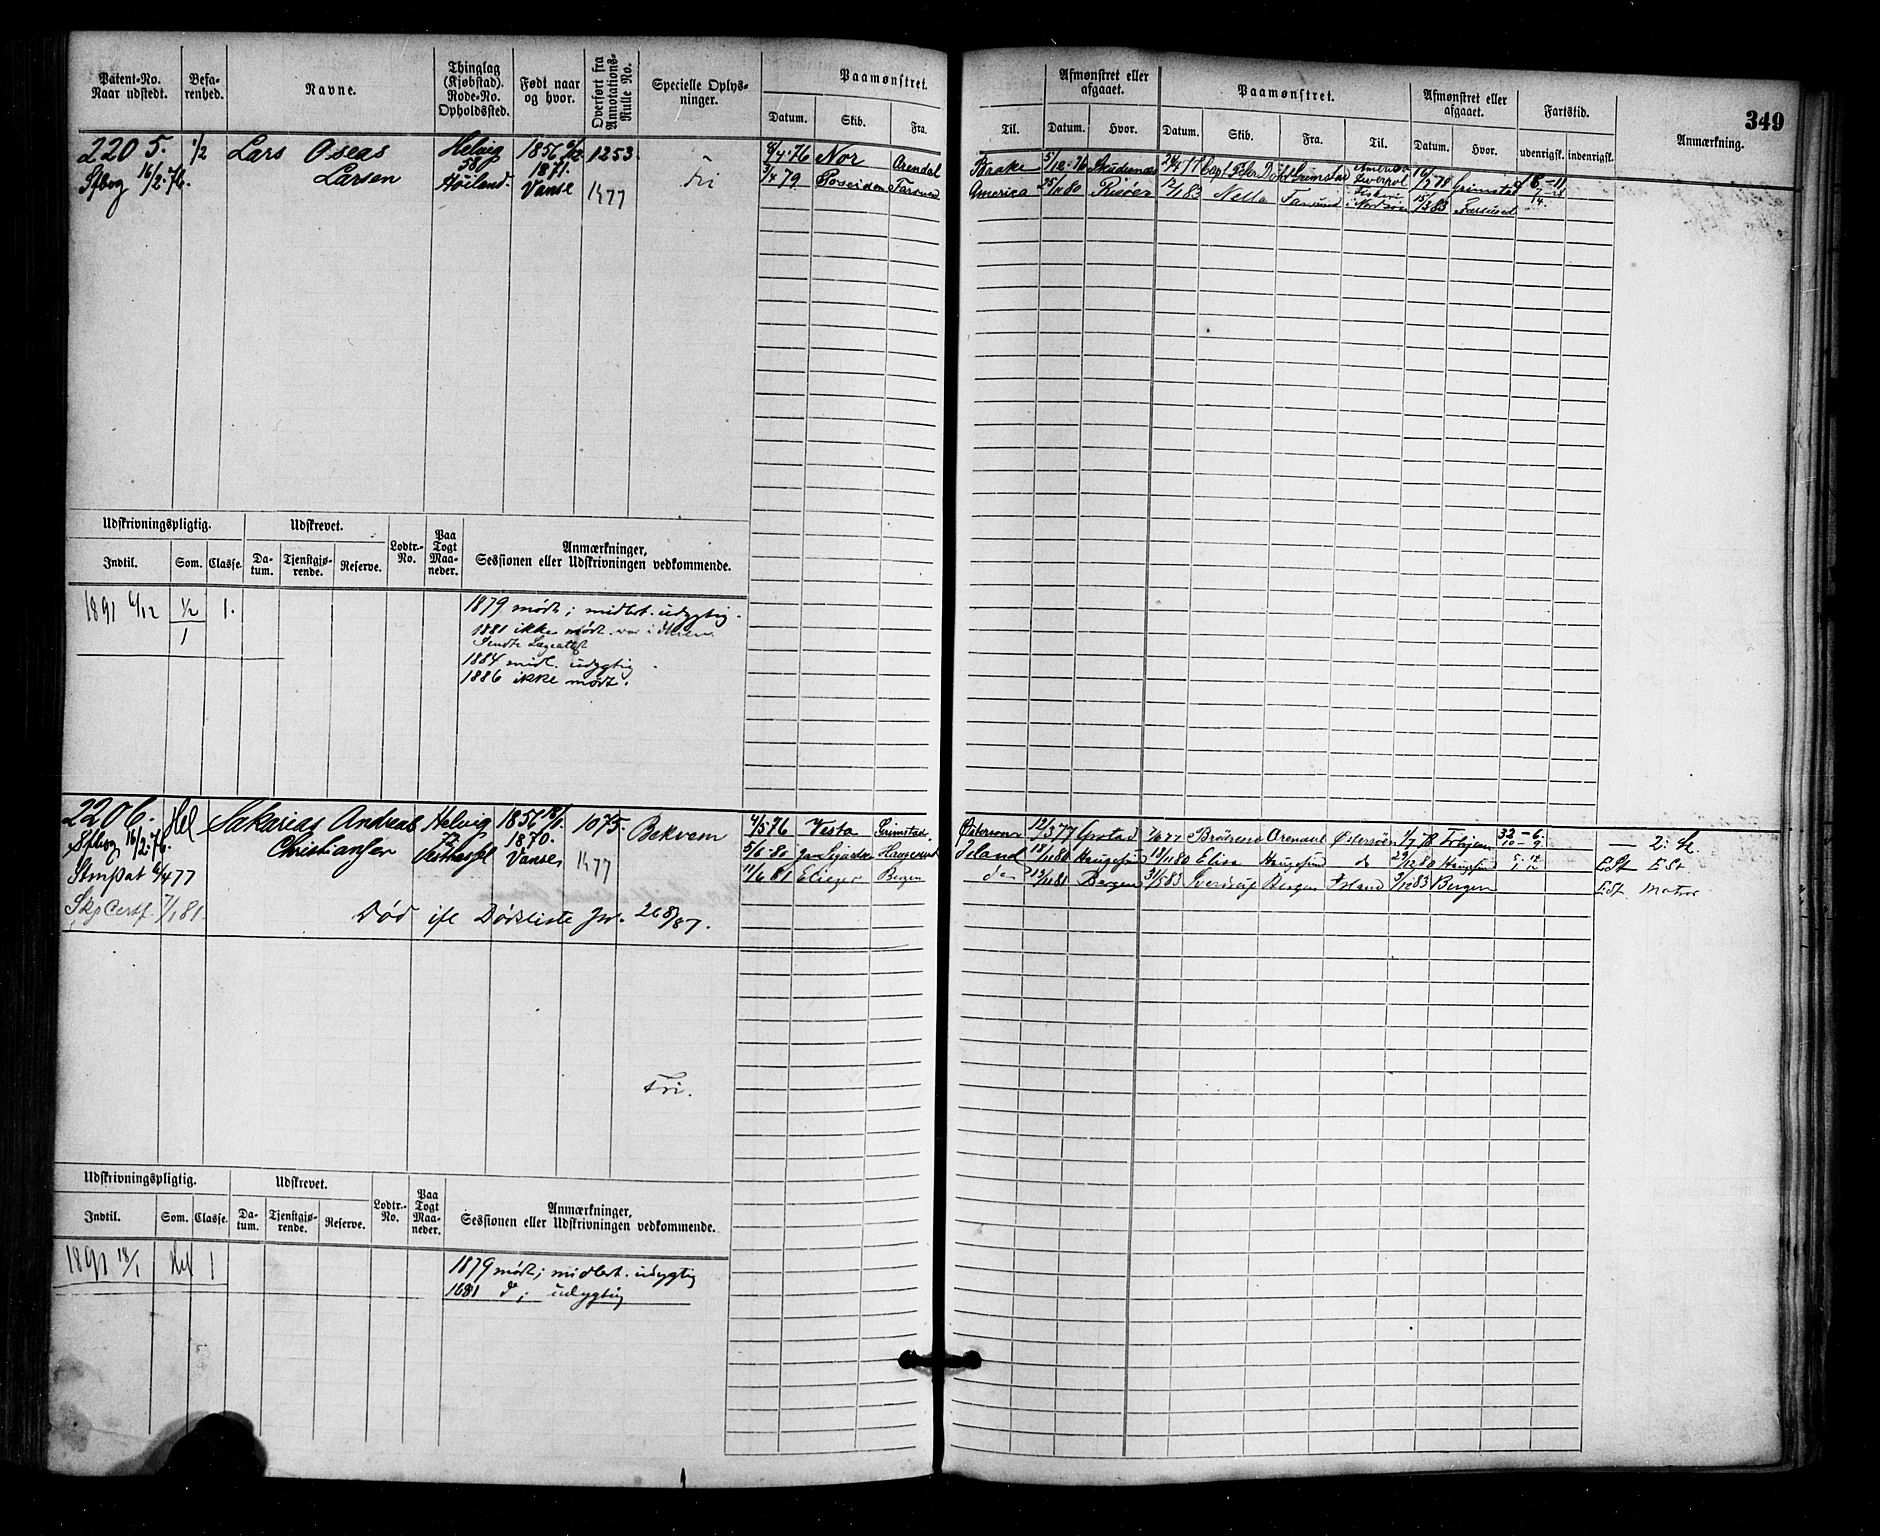 349
Patent-No. Naar udstedt.
Befarenhed.
Navne.
Thinglag (Kjøbstad). Rode-No. Opholdssted.
Født naar og hvor.
Overført fra Annotations-Rulle No.
Specielle Oplysninger.
Paamønstret.
Datum. Skib. Fra. Til.
Afmønstret eller afgaaet.
Datum. Hvor.
Paamønstret.
Datum. Skib. Fra. Til.
Afmønstret eller afgaaet.
Datum. Hvor.
Fartstid.
udenrigsk. indenrigsk.
Anmærkning.
2205. 1/2 Lars Oseas Helvig 1856 6/12 1253.
Sfbog 16/2.76. Larsen 58 Høiland. 1871. Vanse 1477 Fri
8/4.76 Nor Arendal Braake 5/12.76 Grimstad
3/4 79 Poseidon Farsund America 25/1 80 Risøer 12/1 83 Nella Farsund Nordsøen 15/3 83 Farsund
Udskrivningspligtig. Udskrevet. Lodtr.-No. Paa Togt Maaneder. Anmærkninger, Sessionen eller Udskrivningen vedkommende.
Indtil. Som. Classe. Datum. Tjenstgjørende. Reserve.
1891 6/12 1/2 1.
1
1879 mødt; midlert. udygtig.
1881 ikke mødt. var i
Sendte Lægeattest
1884 midl. udygtig.
1886 ikke mødt.
2206. Hel Sakarias Andreas Helvig 1856 18/1. 1075. Bekvem
Sfbog 16/2.76. Christiansen 72 Vesthassel 1870. Vanse 1477
StmPat 6/4 77
Skp Certf. 7/1 81.
Død ifl Dødsliste Jr. 268/87.
Fri.
4/5 76 Vesta Grimstad Østersøen 12/3 77 7/6 77 Arendal Østersøen 1/7 78 32-6. — 2. St.
5/6.80 Haugesund Island 18/11 80 Haugesund 18/11 80 Elisa Haugesund do 29/12 80 Haugesund ESt ESt
11/6 81 Eliezer Bergen do 81 Bergen 31/5 83 Sverdrup Bergen Island 3/12 83 Bergen ESt. Matros
Udskrivningspligtig. Udskrevet. Lodtr.-No. Paa Togt Maaneder. Anmærkninger, Sessionen eller Udskrivningen vedkommende.
Indtil. Som. Classe. Datum. Tjenstgjørende. Reserve.
1891 18/1 Hel 1
1879 mødt; midlert. udygtig
1881 do; udygtig